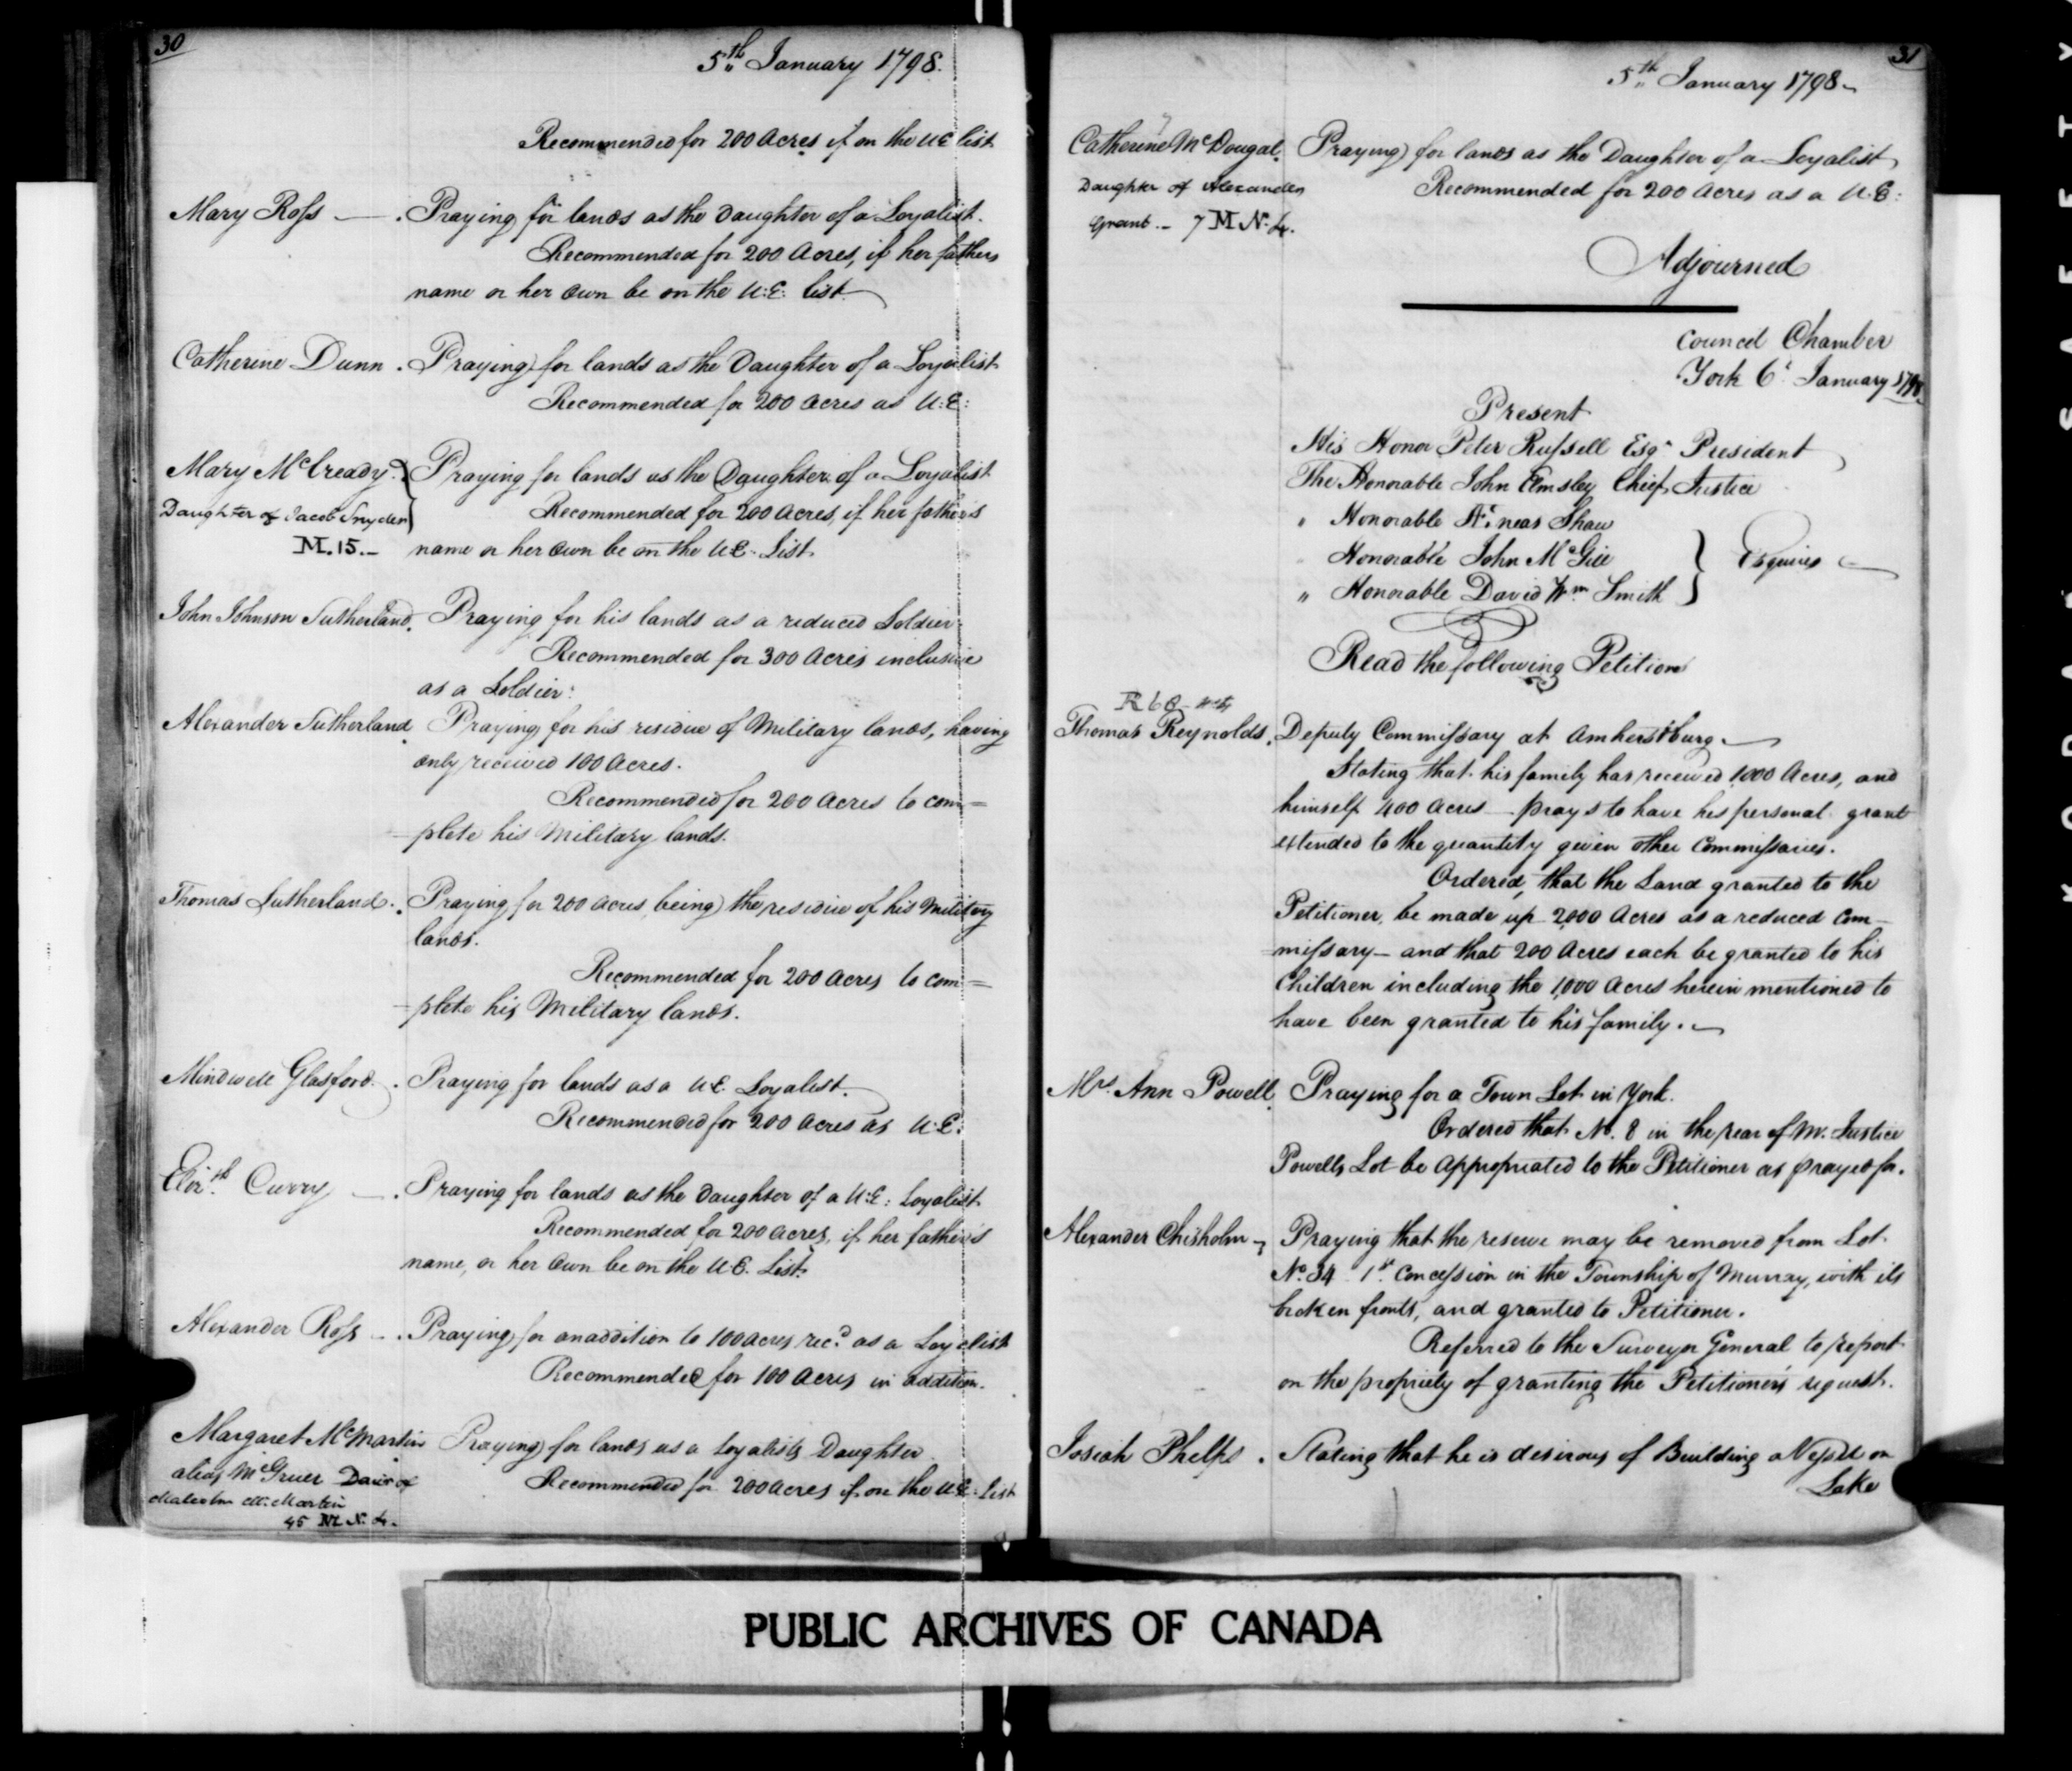 30
5th January 1798.
Recommended for 200 Acres if on the U E list
Mary Ross — . Praying for lands as the Daughter of a Loyalist.
Recommended for 200 Acres, if her fathers
name or her own be on the U:E: list
Catherine Dunn . Praying for lands as the Daughter of a Loyalist
Recommended for 200 Acres as U:E:
Mary McCready. Praying for lands as the Daughter of a Loyalist
Daughter of Jacob Snyder Recommended for 200 Acres, if her father's
M. 15. – name or her own be on the U E. List
John Johnson Sutherland. Praying for his lands as a reduced Soldier
Recommended for 300 Acres inclusive
as a Soldier:
Alexander Sutherland Praying for his residue of Military lands, having
only received 100 Acres.
Recommended for 200 Acres to com=
plete his Military lands.
Thomas Sutherland . Praying for 200 Acres being the residue of his Military
lands.
Recommended for 200 Acres to com=
plete his Military lands.
Mindwell Glasford . Praying for lands as a U.E. Loyalist.
Recommended for 200 Acres as U.E.
Elizth Curry — . Praying for lands as the Daughter of a U:E: Loyalist
Recommended for 200 Acres, if her father's
name, or her own be on the U.E. List.
Alexander Ross – . Praying for an addition to 100 Acres recd as a Loyalist
Recommended for 100 Acres in addition.
Margaret McMartin Praying for lands as a Loyalists Daughter
alias McGruer Daur of Recommended for 200 Acres if on the U E: List
Malcolm McMartin
45 M N. 4.
31
5th January 1798 –
Catherine McDougal. Praying for lands as the Daughter of a Loyalist
Daughter of Alexander Recommended for 200 Acres as a U.E:
Grant – 7 M N. 4.
Adjourned
Council Chamber
York 6t January 1798
Present
His Honor Peter Russell Esqr President
The Honorable John Elmsley Chief Justice
" Honorable Æneas Shaw
" Honorable John McGill Esquires
" Honorable David Wm Smith
Read the following Petitions
R 60
Thomas Reynolds. Deputy Commissary at Amherstburg. —
Stating that his family has received 1,000 Acres, and
himself 400 Acres — prays to have his personal grant
extended to the quantity given other Commissaries.
Ordered, that the Land granted to the
Petitioner, be made up 2,000 Acres as a reduced Com–
missary — and that 200 Acres each be granted to his
Children including the 1,000 Acres herein mentioned to
have been granted to his family. —
Mrs Ann Powell. Praying for a Town Lot in York.
Ordered that No. 8 in the rear of Mr. Justice
Powells Lot be appropriated to the Petitioner as prayed for.
Alexander Chisholm – Praying that the reserve may be removed from Lot
No. 34 1st Concession in the Township of Murray, with its
broken fronts, and granted to Petitioner.
Referred to the Surveyor General to report
on the propriety of granting the Petitioner's request.
Josiah Phelps . Stating that he is desirous of Building a Vessel on
Lake
PUBLIC ARCHIVES OF CANADA